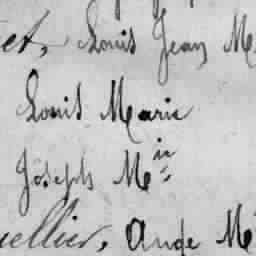 et, Louis Jean M
Louis Marie
Joseph M in
ellier, Ange M